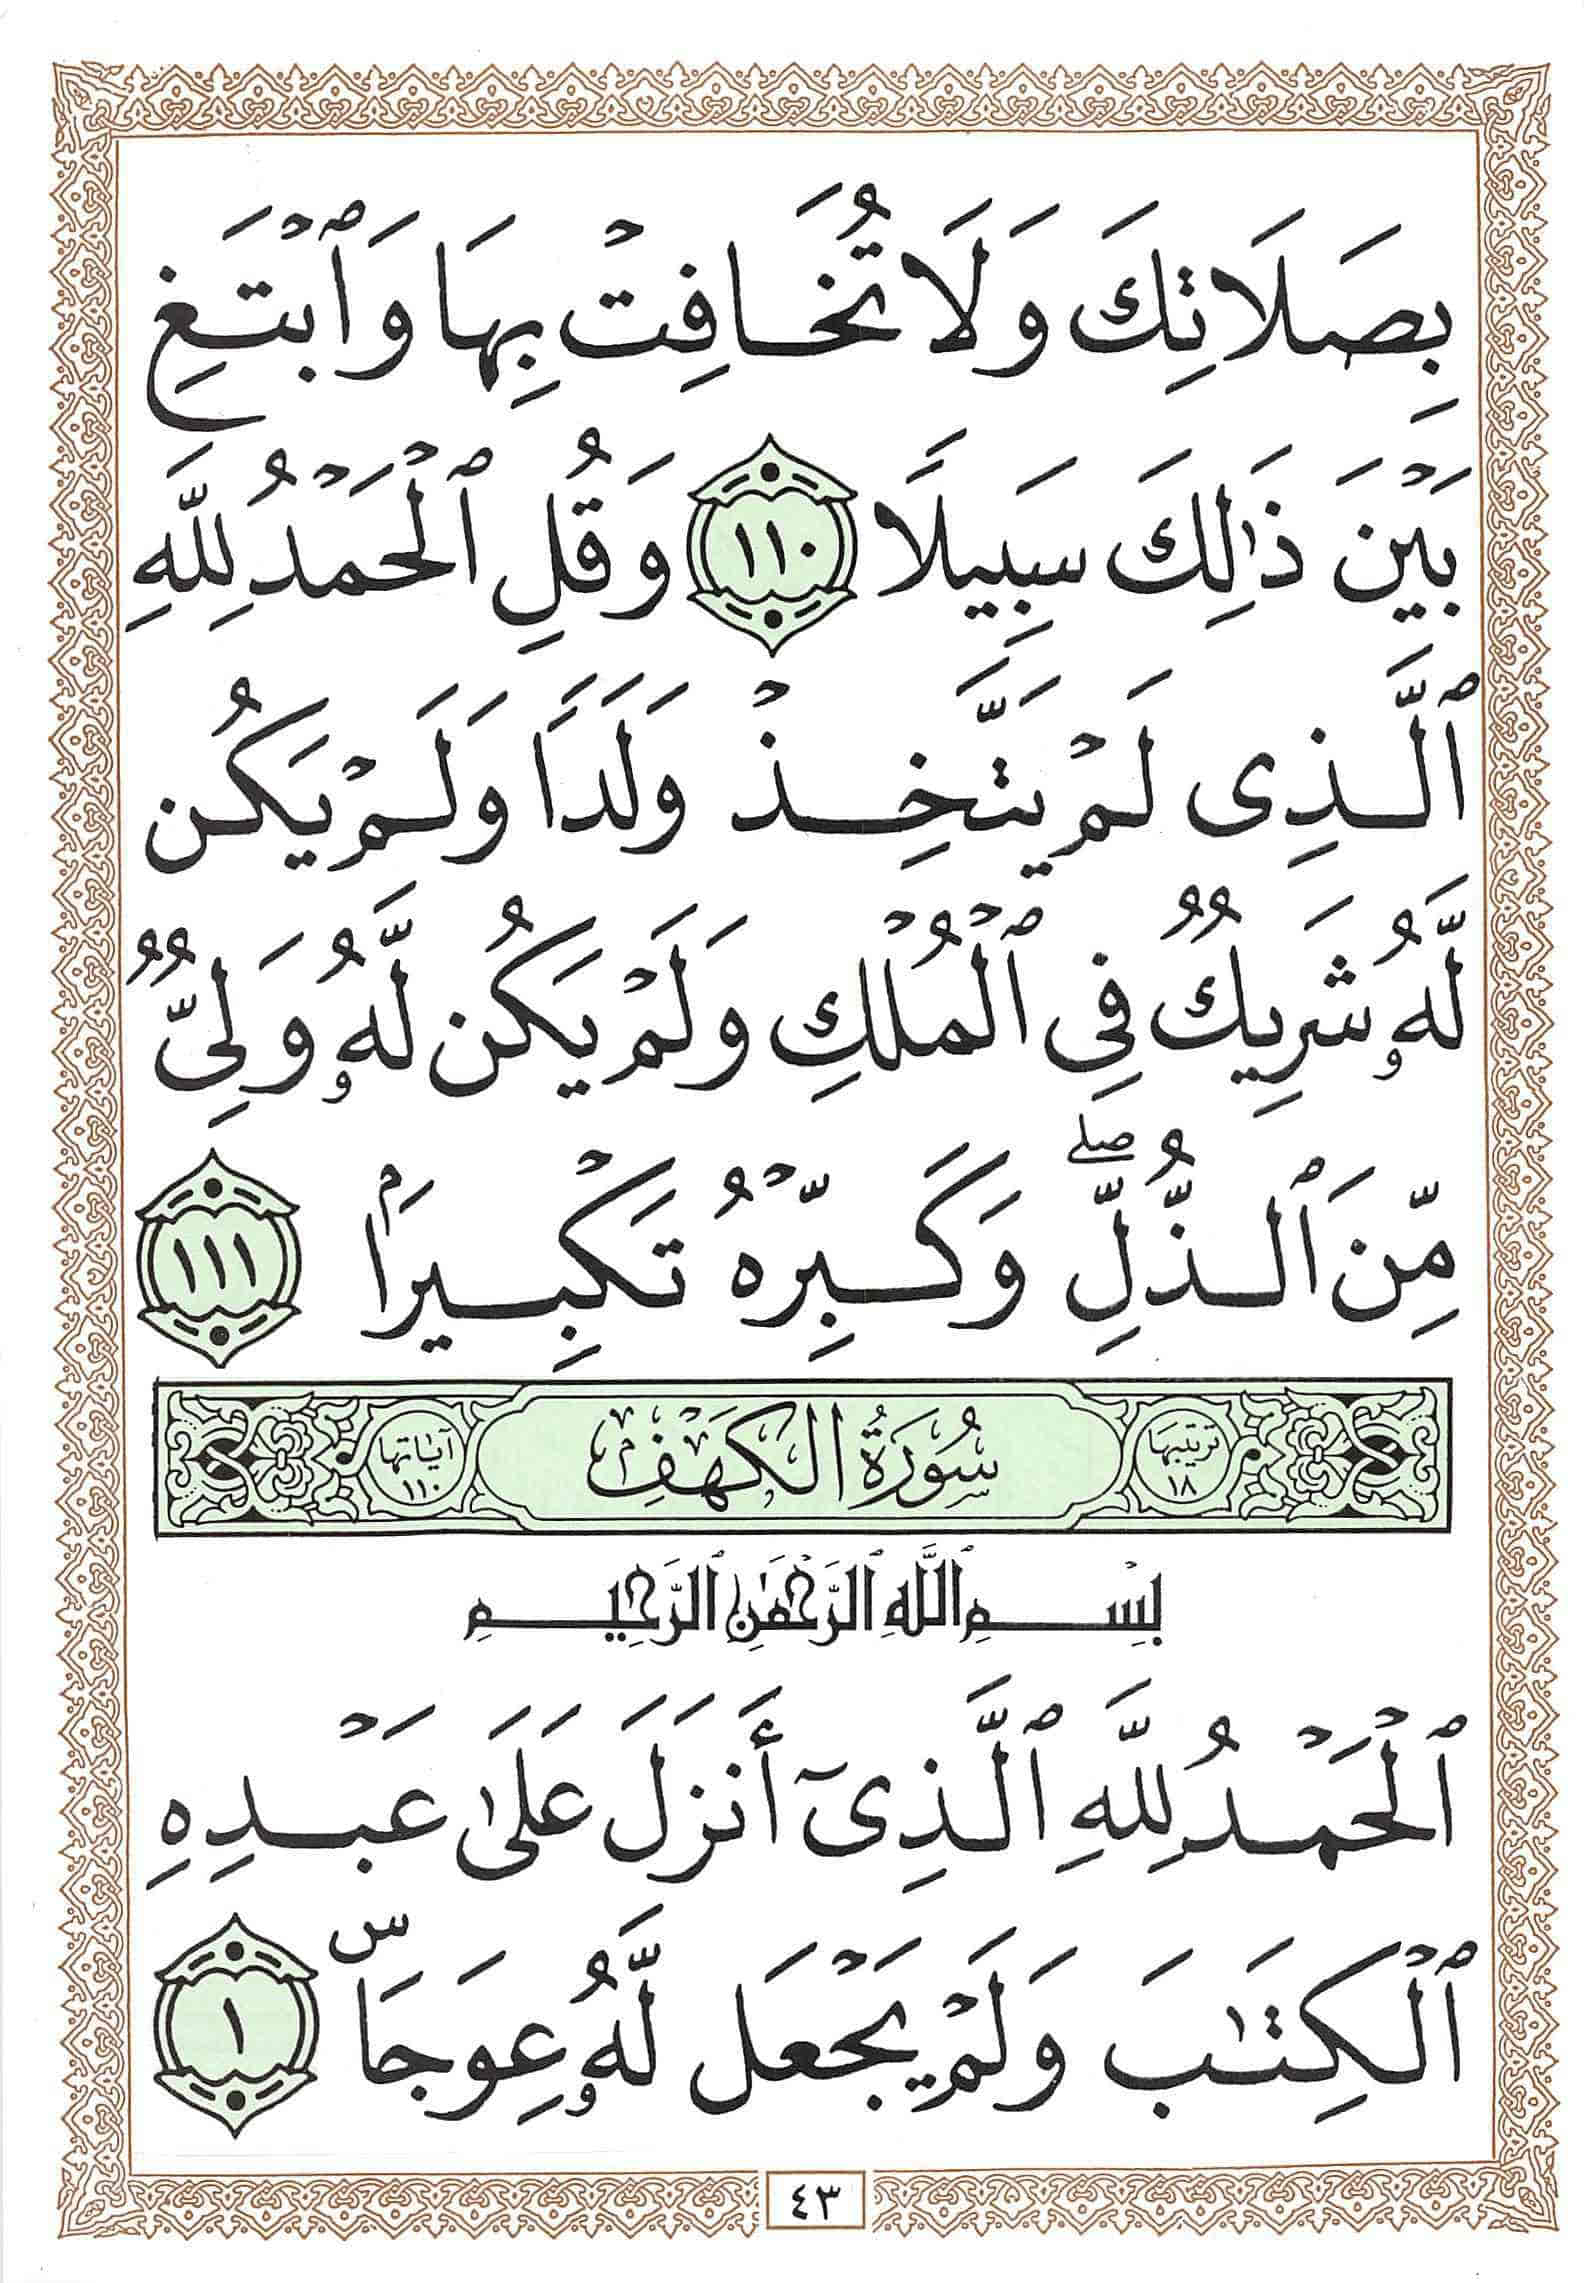 بِصَلَاتِكَ وَلَا تُخَافِتْ بِهَا وَٱبْتَغِ
بَيْنَ ذَٰلِكَ سَبِيلًا ١١٠ وَقُلِ ٱلْحَمْدُ لِلَّهِ
ٱلَّذِى لَمْ يَتَّخِذْ وَلَدًا وَلَمْ يَكُن
لَّهُۥ شَرِيكٌ فِى ٱلْمُلْكِ وَلَمْ يَكُن لَّهُۥ وَلِىٌّ
مِّنَ ٱلذُّلِّ ۖ وَكَبِّرْهُ تَكْبِيرَۢا ١١١
ترتيبها ١٨ سُورَةُ الكَهْفِ آياتها ١١٠
بِسْمِ ٱللَّهِ ٱلرَّحْمَٰنِ ٱلرَّحِيمِ
ٱلْحَمْدُ لِلَّهِ ٱلَّذِىٓ أَنزَلَ عَلَىٰ عَبْدِهِ
ٱلْكِتَـٰبَ وَلَمْ يَجْعَل لَّهُۥ عِوَجَاۜ ١
٤٣